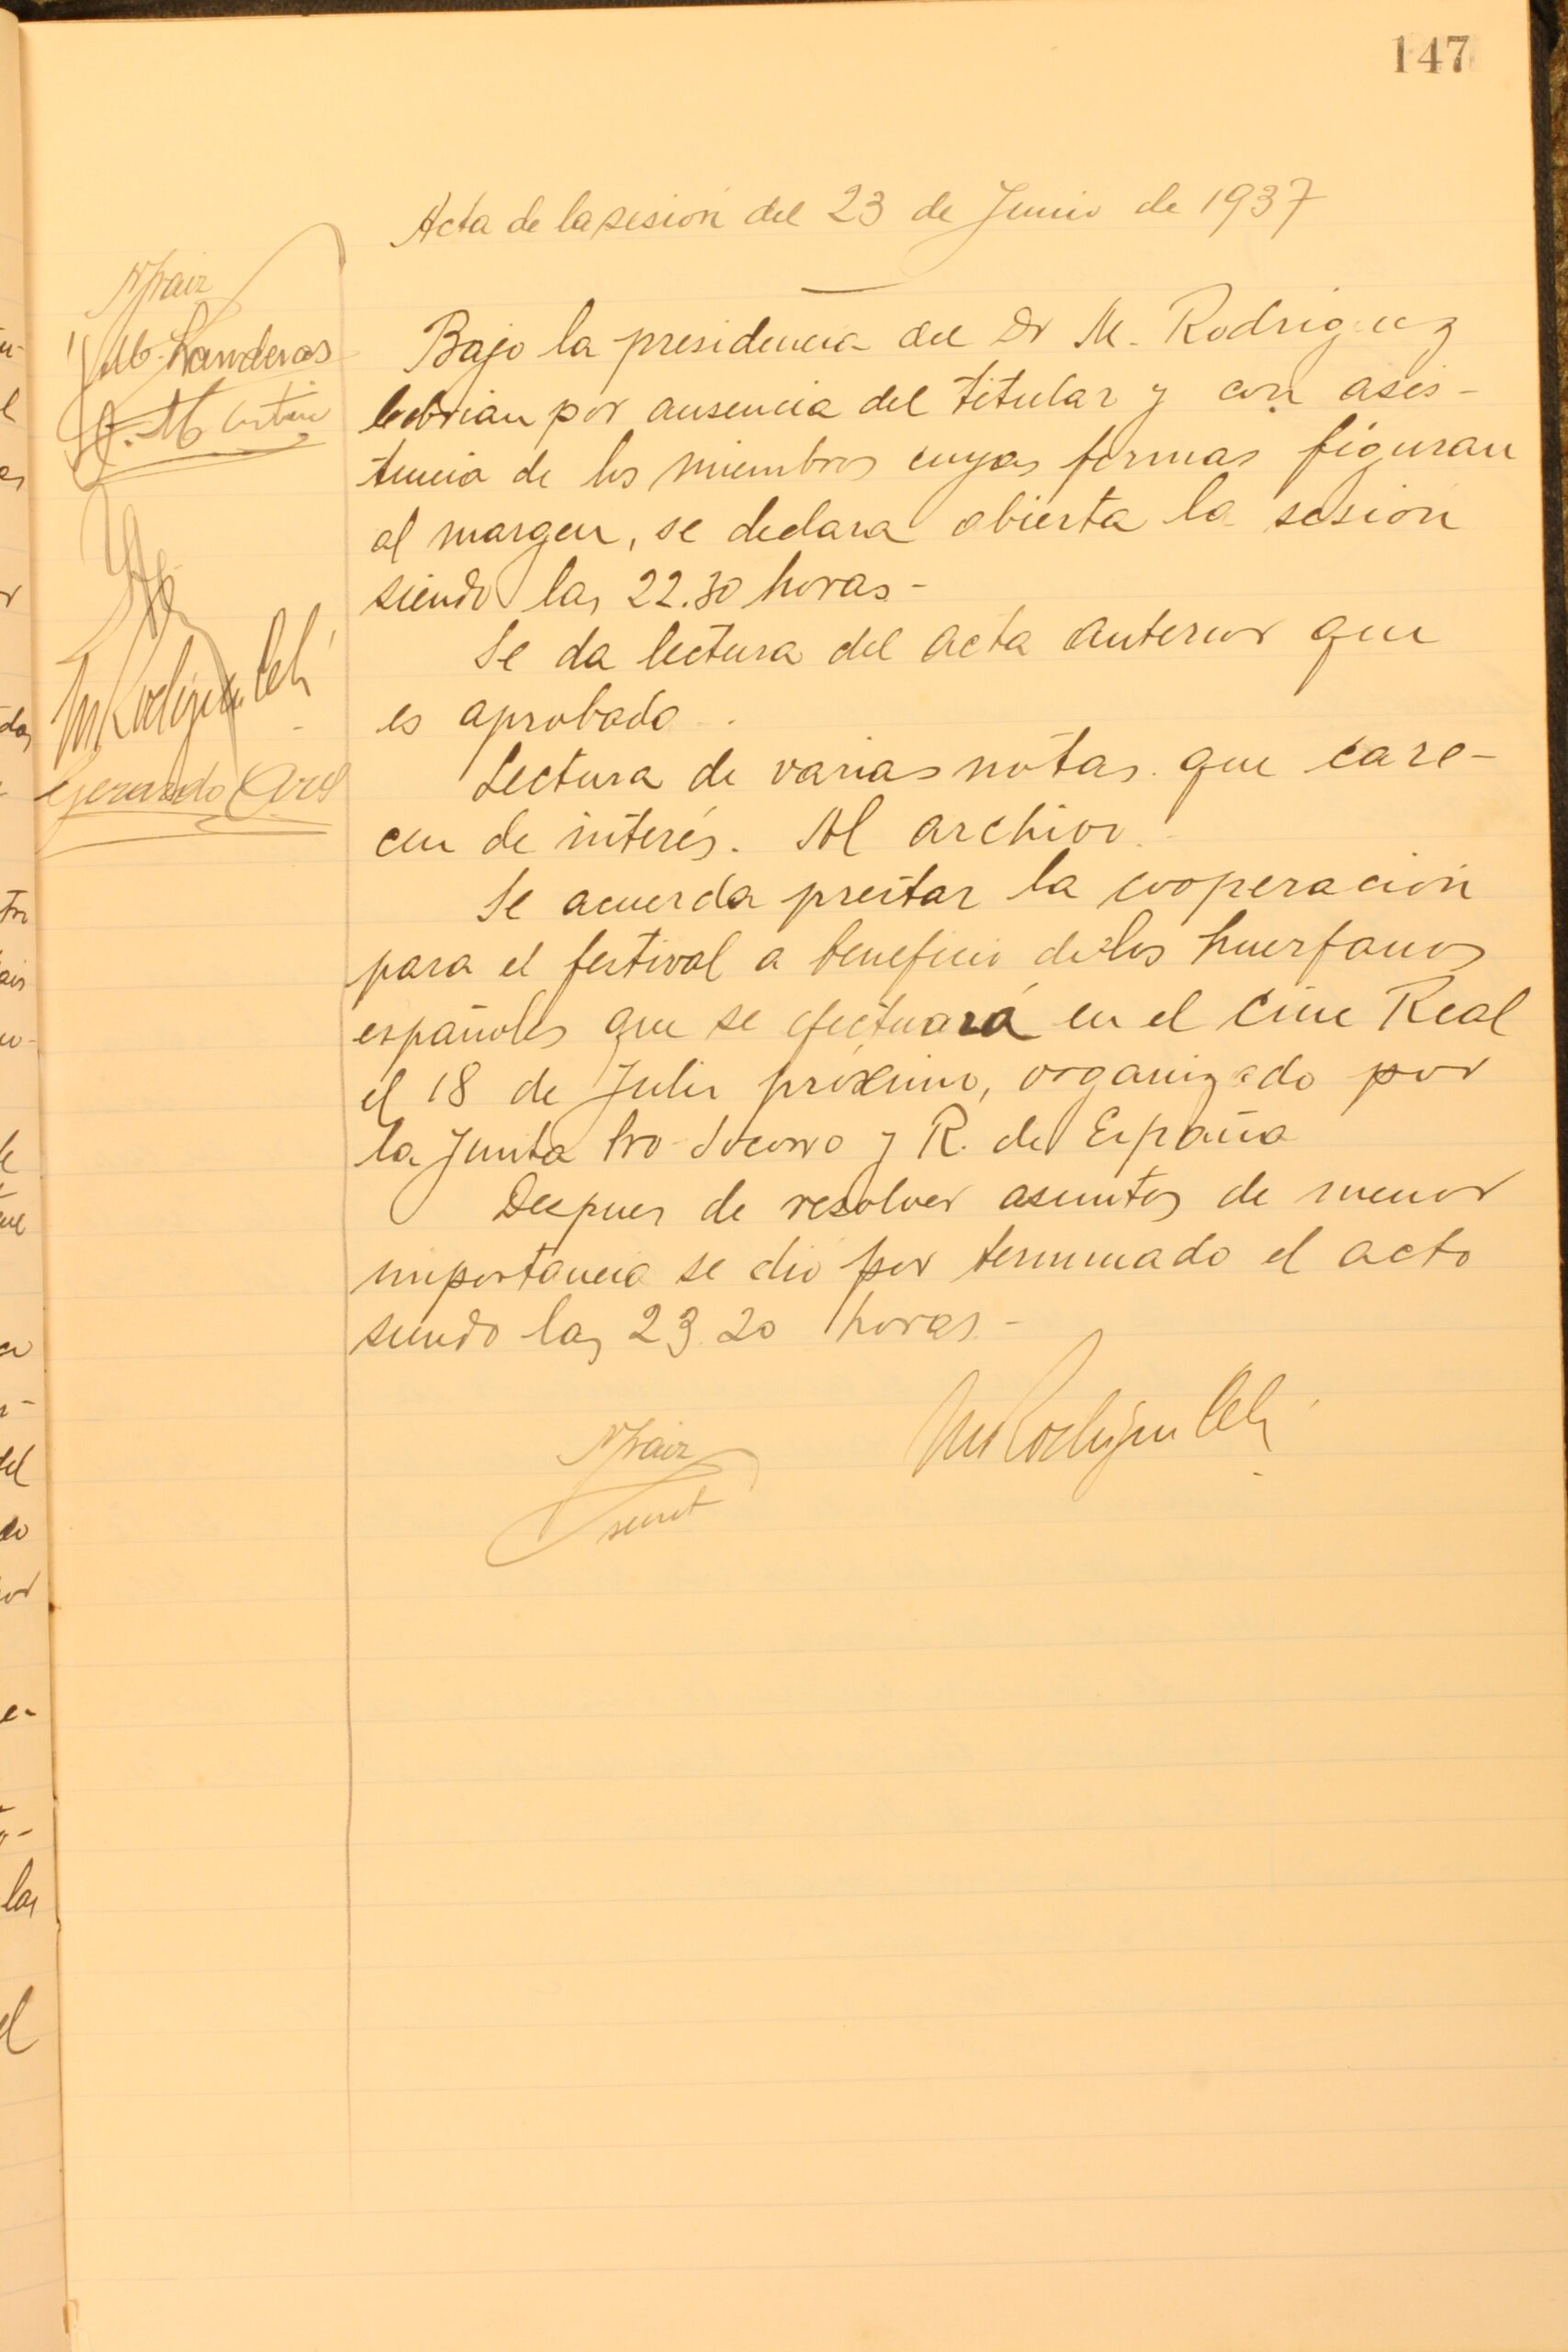 147
Acta de la sesión del 23 de Junio de 1937
Bajo la presidencia del Dr M. Rodriguez
Cebrian por ausencia del titular y con asis-
tencia de los miembros cuyas firmas figuran
al margen, se declara abierta la sesión
siendo las 22.30 horas-
Se da lectura del acta anterior que
es aprobada.
Lectura de varias notas que care-
cen de interés. Al archivo.
Se acuerda prestar la cooperación
para el festival a beneficio de los huerfanos
españoles que se efectuará en el Cine Real
el 18 de Julio próximo, organizado por
la Junta Pro-Socorro y R. de España
Despues de resolver asuntos de menor
importancia se dió por terminado el acto
siendo las 23.20 horas-
M. Banderas
Gerardo